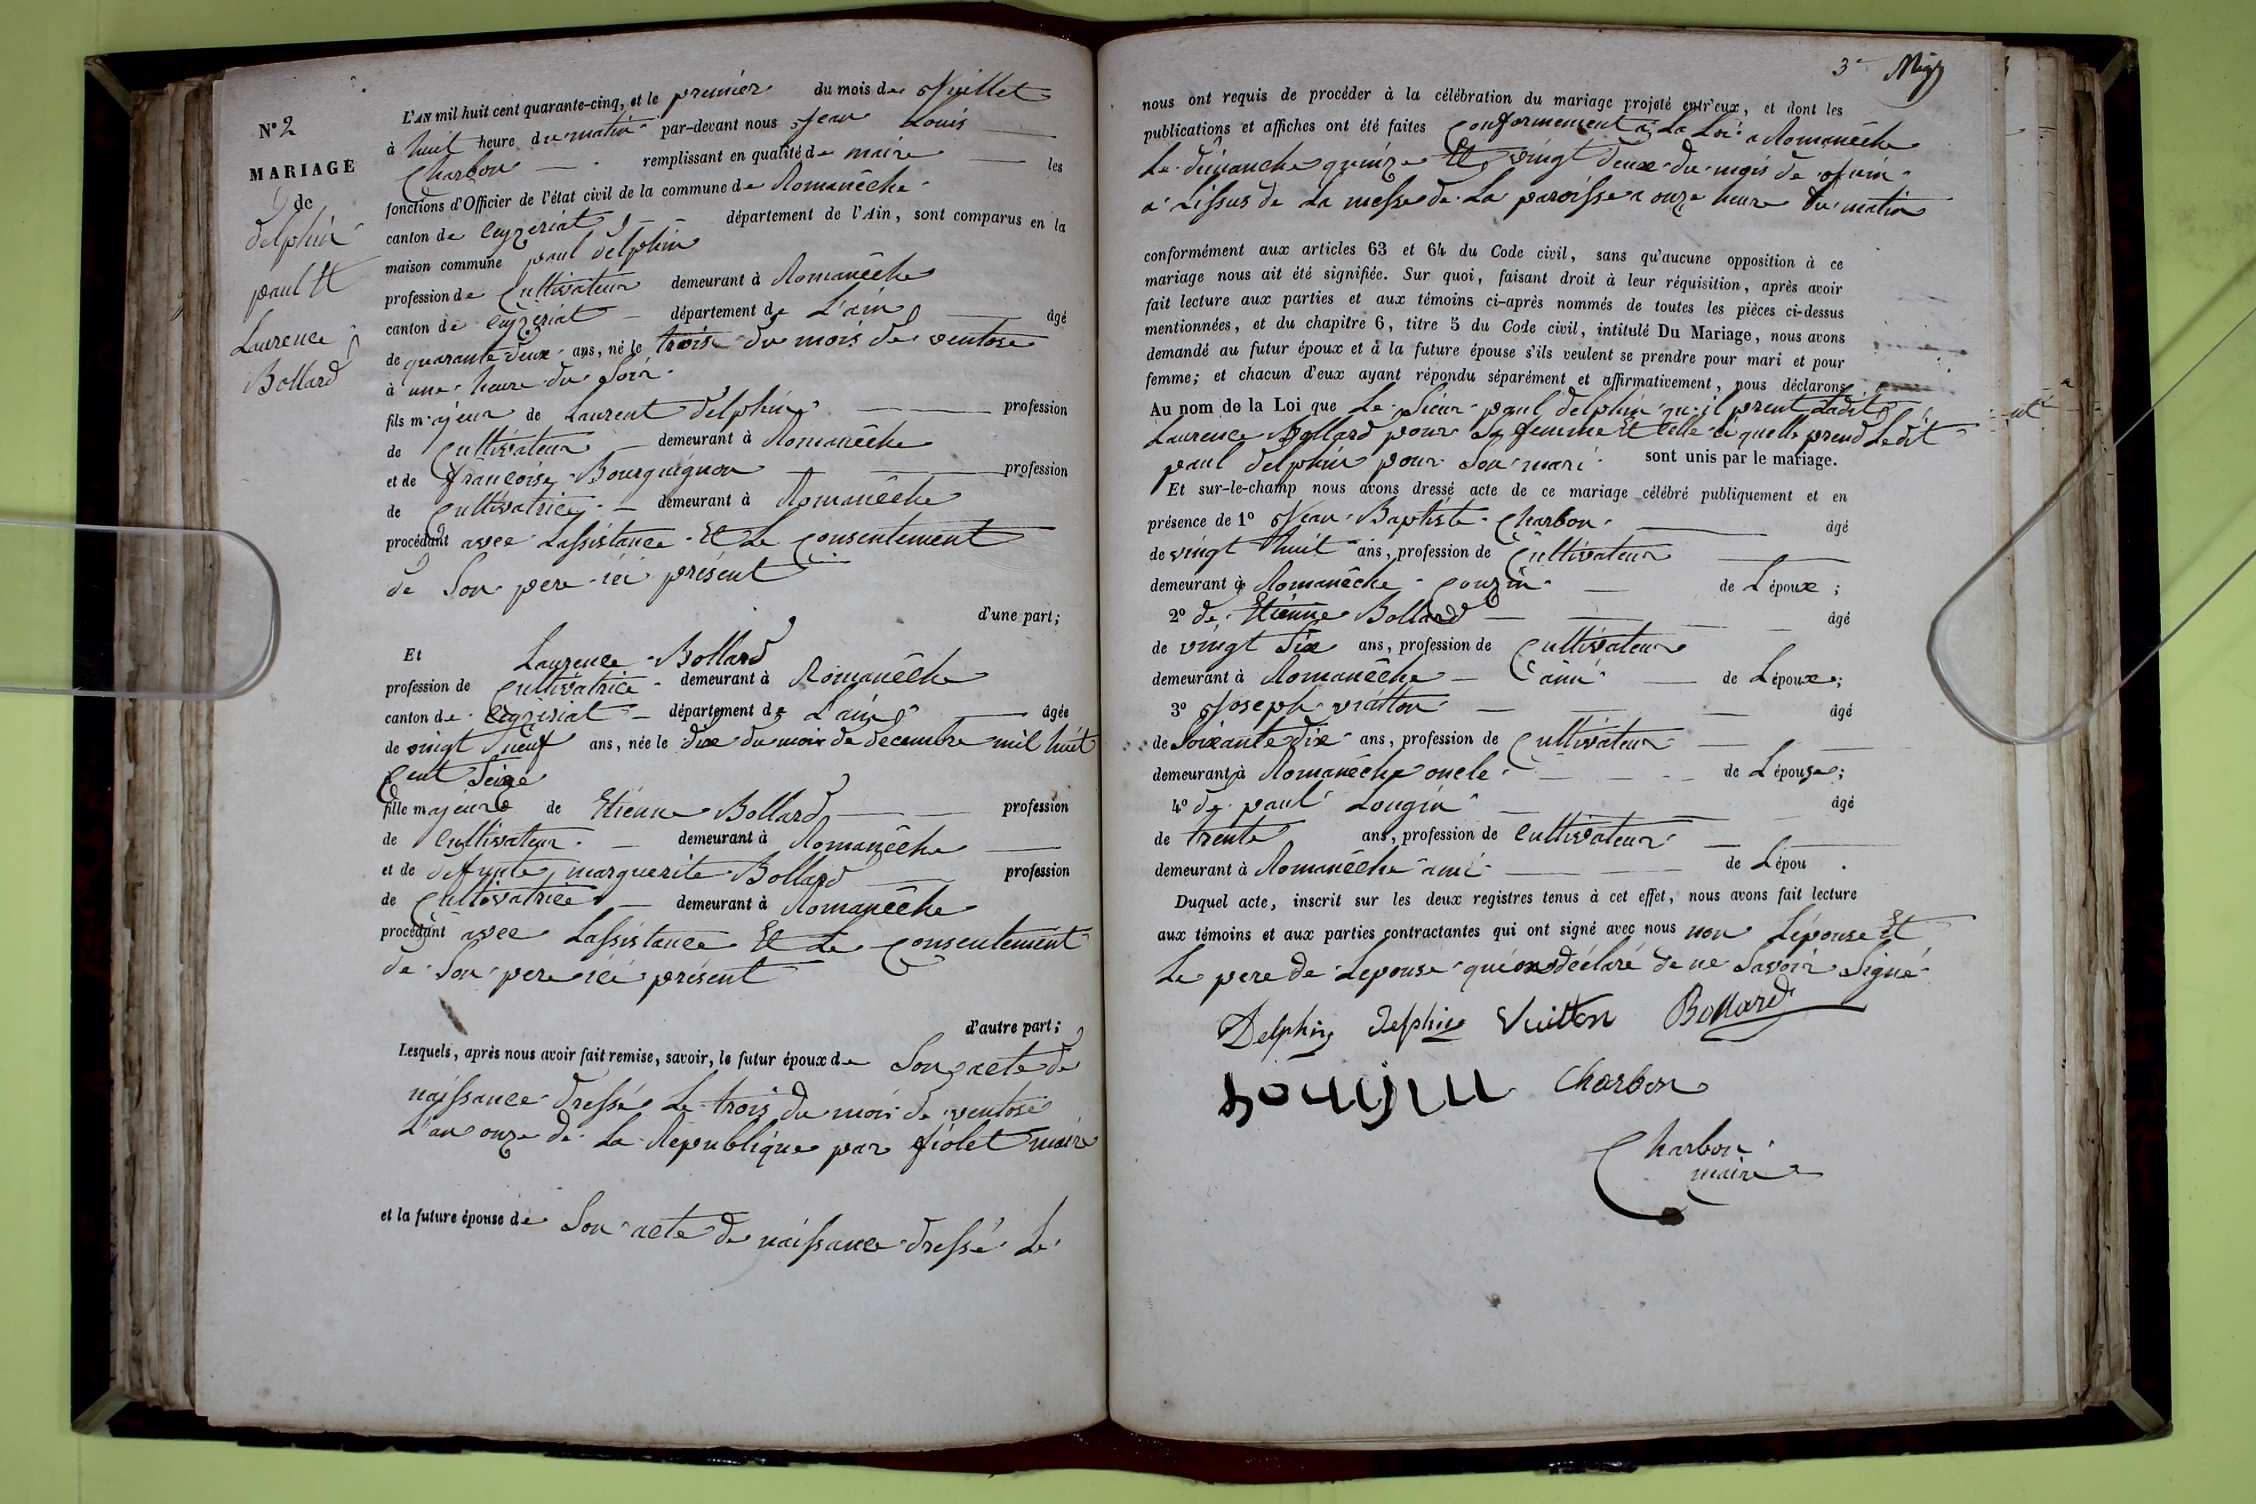 N° 2
MARIAGE
de
delphin
paul Et
Laurence
Bollard
L'AN mil huit cent quarante-cinq, et le premier du mois de Juillet
à huit heure du matin par-devant nous Jean Louis
Charbon remplissant en qualité de maire les
fonctions d'Officier de l'état civil de la commune de Romanêche
canton de Ceyzeriat département de l'Ain, sont comparus en la
maison commune paul delphin
profession de Cultivateur demeurant à Romanêche
canton de Ceyzeriat département de L'ain âgé
de quarante deux ans, né le trois du mois de ventose
à une heure du Soir
fils majeur de Laurent delphin profession
de Cultivateur demeurant à Romanêche
et de françoise Bourguignon profession
de Cultivatrice demeurant à Romanêche
procédant avec Lassistance Et Le Consentement
de Son pere ici présent
d'une part;
Et Laurence Bollard
profession de Cultivatrice demeurant à Romanêche
canton de Ceyzeriat département de L'ain âgée
de vingt neuf ans, née le dix du mois de decembre mil huit
Cent Seize
fille majeure de Etienne Bollard profession
de Cultivateur demeurant à Romanêche
et de defunte marguerite Bollard profession
de Cultivatrice demeurant à Romanêche
procédant avec Lassistance Et Le Consentement
de Son pere ici présent
d'autre part;
Lesquels, après nous avoir fait remise, savoir, le futur époux de Son acte de
naissance dressé Le trois du mois de ventose
L'an onze de La Republique par fiolet maire
et la future épouse de Son acte de naissance dressé Le
3e
nous ont requis de procéder à la célébration du mariage projeté entr'eux, et dont les
publications et affiches ont été faites Conformement a La Loi a Romanêche
Le dimanche quinze Et vingt deux du mois de Juin
a Lissus de La messe de La paroisse a onze heure du matin
conformément aux articles 63 et 64 du Code civil, sans qu'aucune opposition à ce
mariage nous ait été signifiée. Sur quoi, faisant droit à leur réquisition, après avoir
fait lecture aux parties et aux témoins ci-après nommés de toutes les pièces ci-dessus
mentionnées, et du chapitre 6, titre 5 du Code civil, intitulé Du Mariage, nous avons
demandé au futur époux et à la future épouse s'ils veulent se prendre pour mari et pour
femme; et chacun d'eux ayant répondu séparément et affirmativement, nous déclarons
Au nom de la Loi que Le Sieur paul delphin qu'il prent Ladit
Laurence Bollard pour Sa femme Et Celle ci quelle prend Ledit
paul delphin pour Son mari sont unis par le mariage.
Et sur-le-champ nous avons dressé acte de ce mariage célébré publiquement et en
présence de 1° Jean Baptiste Charbon âgé
de vingt huit ans, profession de Cultivateur
demeurant à Romanêche Couzin de L'époux ;
2° de Etienne Bollard âgé
de vingt Six ans, profession de Cultivateur
demeurant à Romanêche ami de L'époux ;
3° Joseph âgé
de Soixante dix ans, profession de Cultivateur
demeurant à Romanêche oncle de L'épouse ;
4° de paul Lougin âgé
de trente ans, profession de Cultivateur
demeurant à Romanêche ami de L'épou .
Duquel acte, inscrit sur les deux registres tenus à cet effet, nous avons fait lecture
aux témoins et aux parties contractantes qui ont signé avec nous non Lépouse Et
Le pere de Lepouse qui ont déclaré de ne Savoir Signé
Delphin delphin Vuitton Bollard
Lougin Charbon
Charbon
maire